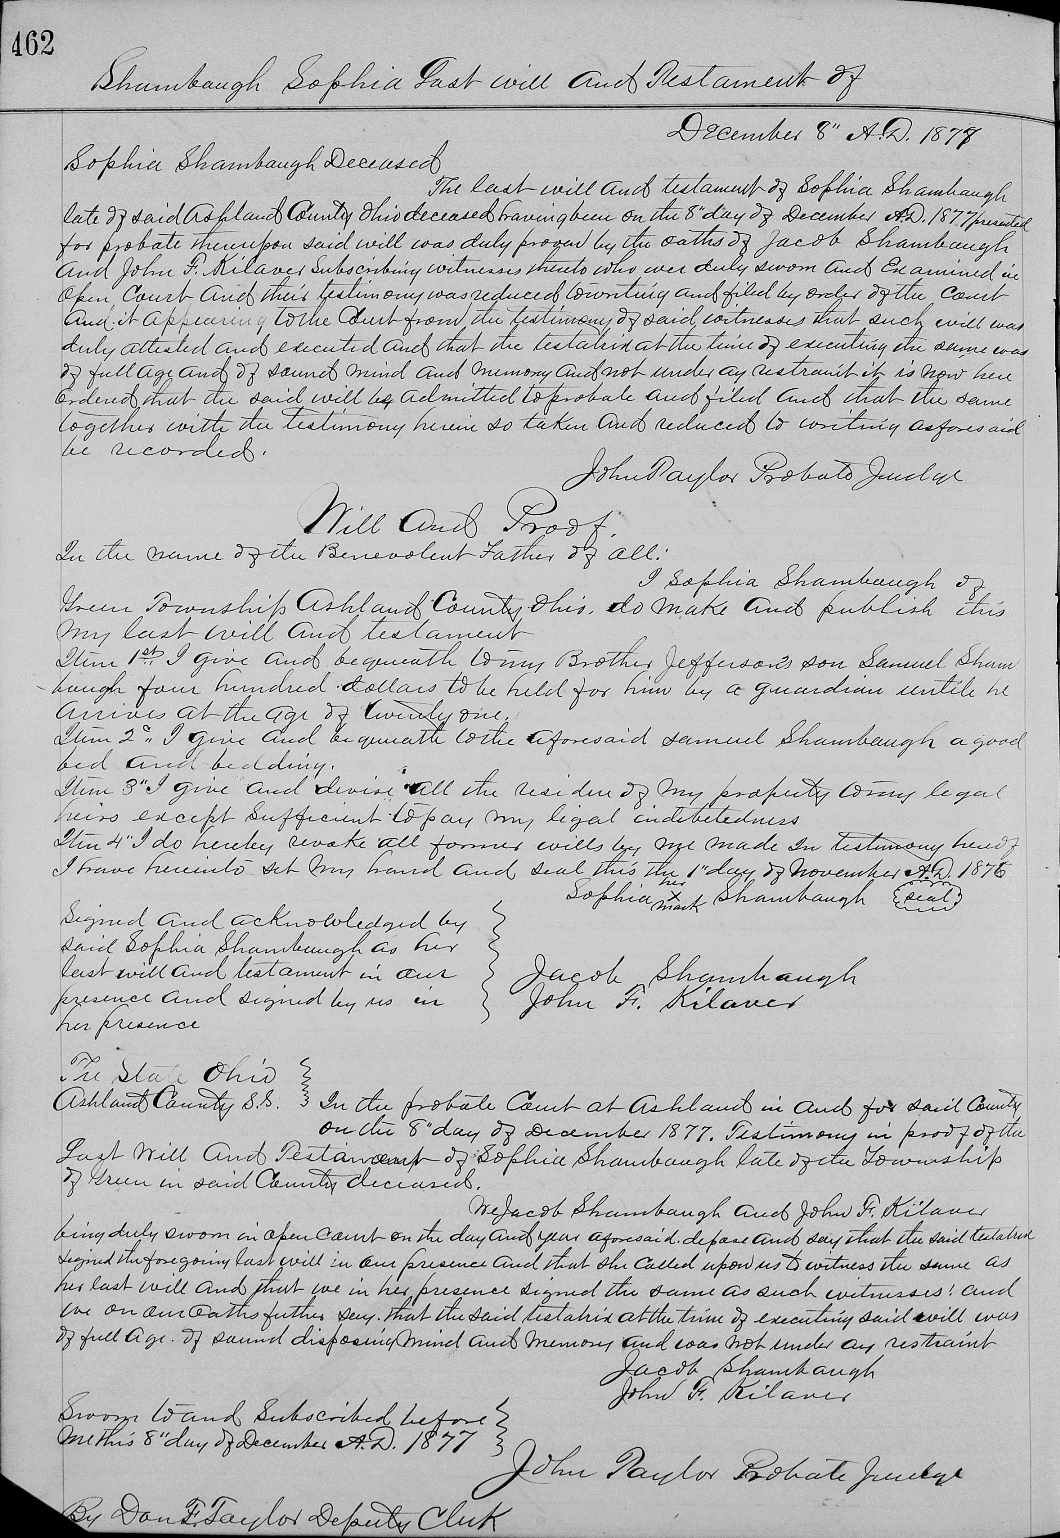 462
Shambaugh Sophia Last will and Testament of
December 8" A.D. 1877
Sophia Shambaugh Deceased
The last will and testament of Sophia Shambaugh
late of said Ashland County Ohio deceased having been on the 8" day of December A.D. 1877 presented
for probate thereupon said will was duly proven by the oaths of Jacob Shambaugh
and John F. Kilaver Subscribing witnesses thereto who wer duly sworn and Examined in
open Court and their testimony was reduced to writing and filed by order of the Court
and it appearing to the Court from the testimony of said witnesses that such will was
duly attested and executed and that the testatrix at the time of executing the same was
of full age and of sound mind and memory and not under ay restraint it is now here
ordered that the said will be admitted to probate and filed and that the same
together with the testimony herein so taken and reduced to writing aforesaid
be recorded.
John Taylor Probate Judge
Will and Proof.
In the name of the Benevolent Father of all:
I Sophia Shambaugh of
Green Township Ashland County Ohio. do make and publish this
my last will and testament
Item 1st I give and bequeath to my Brother Jefferson's son Samuel Sham
baugh four hundred dollars to be held for him by a guardian untile he
arrives at the age of twenty one.
Item 2" I give and bequeath to the aforesaid samuel Shambaugh a good
bed and bedding.
Item 3" I give and devise all the residue of my property to my legal
heirs except Sufficient to pay my ligal indebetedness
Item 4" I do hereby revoke all former wills by me made In testimony hereof
I have hereinto set my hand and seal this the 1" day of November A.D. 1876
Sophia her x mark Shambaugh {seal}
Signed and acknowledged by
said Sophia Shambaugh as her
last will and testament in our
presence and signed by us in
her presence
Jacob Shambaugh
John F. Kilaver
The State Ohio
Ashland County S.S. In the probate Court at Ashland in and for said County
on the 8" day of December 1877. Testimony in proof of the
Last Will and Testament of Sophia Shambaugh late of the Township
of Green in said County deceased.
We Jacob Shambaugh and John F. Kilaver
being duly sworn in open court on the day and year aforesaid. depose and say that the said testatrix
signed the foregoing last will in our presence and that she called upon us to witness the same as
her last will and that we in her presence signed the same as such witnesses: and
we on our oaths futher say. that the said testatrix at the time of executing said will was
of full age. of sound disposing mind and memory and was not under any restraint
Jacob Shambaugh
John F. Kilaver
Sworn to and Subscribed before
me this 8" day of December A.D. 1877
John Taylor Probate Judge
By Don F. Taylor Deputy Clerk